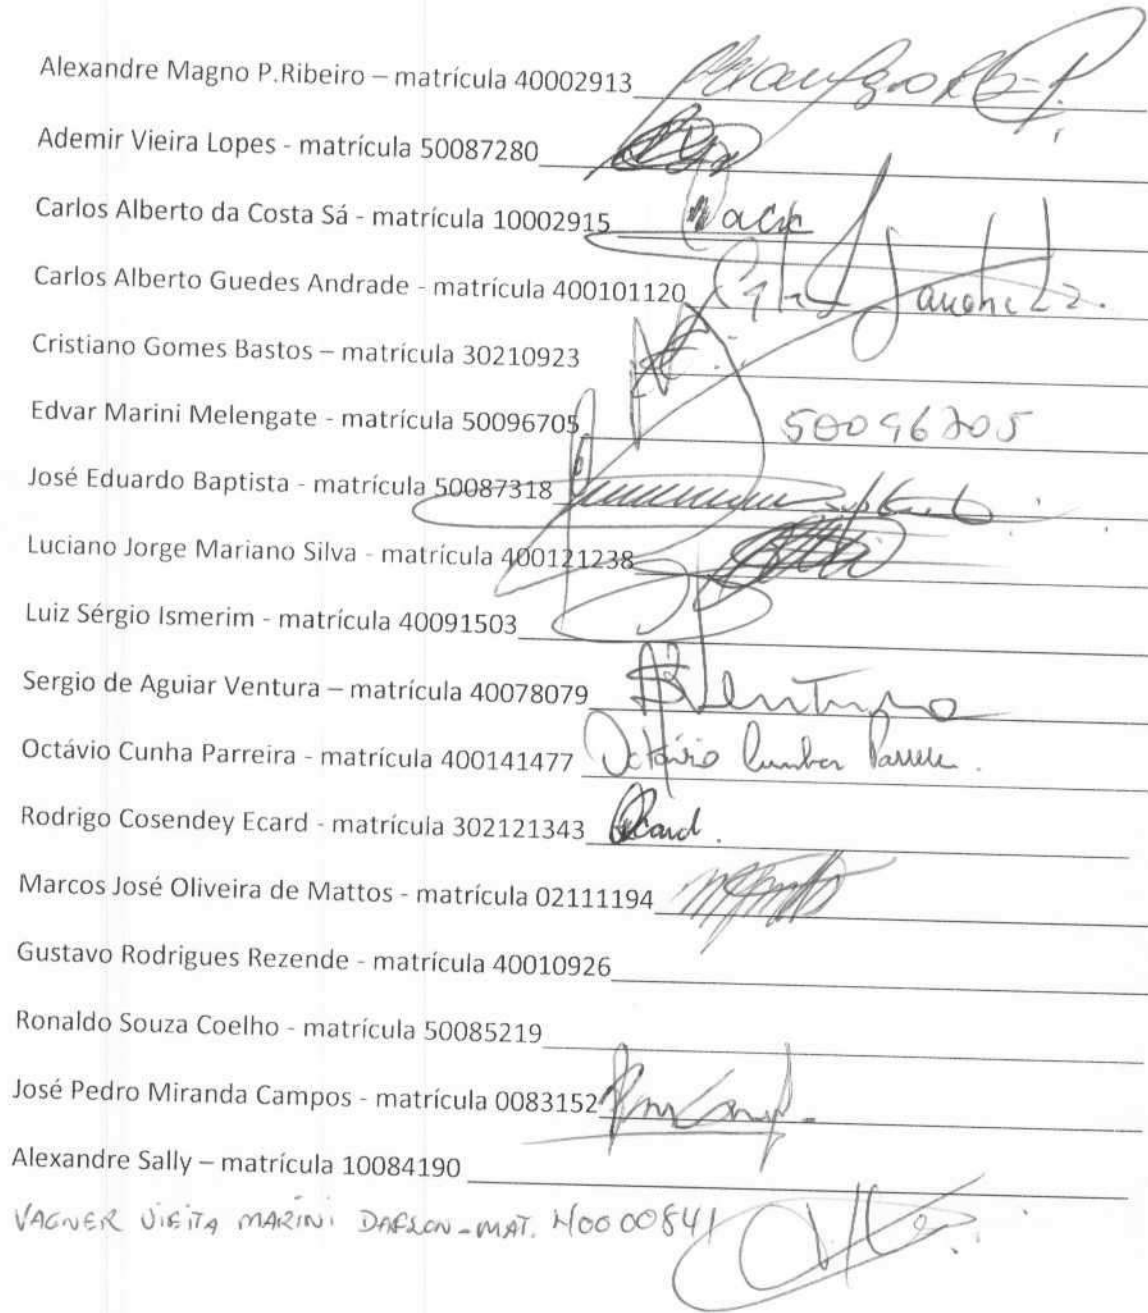 Alexandre Magno P.Ribeiro – matrícula 40002913
Ademir Vieira Lopes - matrícula 50087280
Carlos Alberto da Costa Sá - matrícula 10002915
Carlos Alberto Guedes Andrade - matrícula 400101120
Cristiano Gomes Bastos – matrícula 30210923
Edvar Marini Melengate - matrícula 50096705 50096705
José Eduardo Baptista - matrícula 50087318
Luciano Jorge Mariano Silva - matrícula 400121238
Luiz Sérgio Ismerim - matrícula 40091503
Sergio de Aguiar Ventura – matrícula 40078079 Ventura
Octávio Cunha Parreira - matrícula 400141477 Octávio Cunha
Rodrigo Cosendey Ecard - matrícula 302121343 Ecard.
Marcos José Oliveira de Mattos - matrícula 02111194
Gustavo Rodrigues Rezende - matrícula 40010926
Ronaldo Souza Coelho - matrícula 50085219
José Pedro Miranda Campos - matrícula 0083152
Alexandre Sally – matrícula 10084190
VAGNER MARINI DAFLON - MAT.